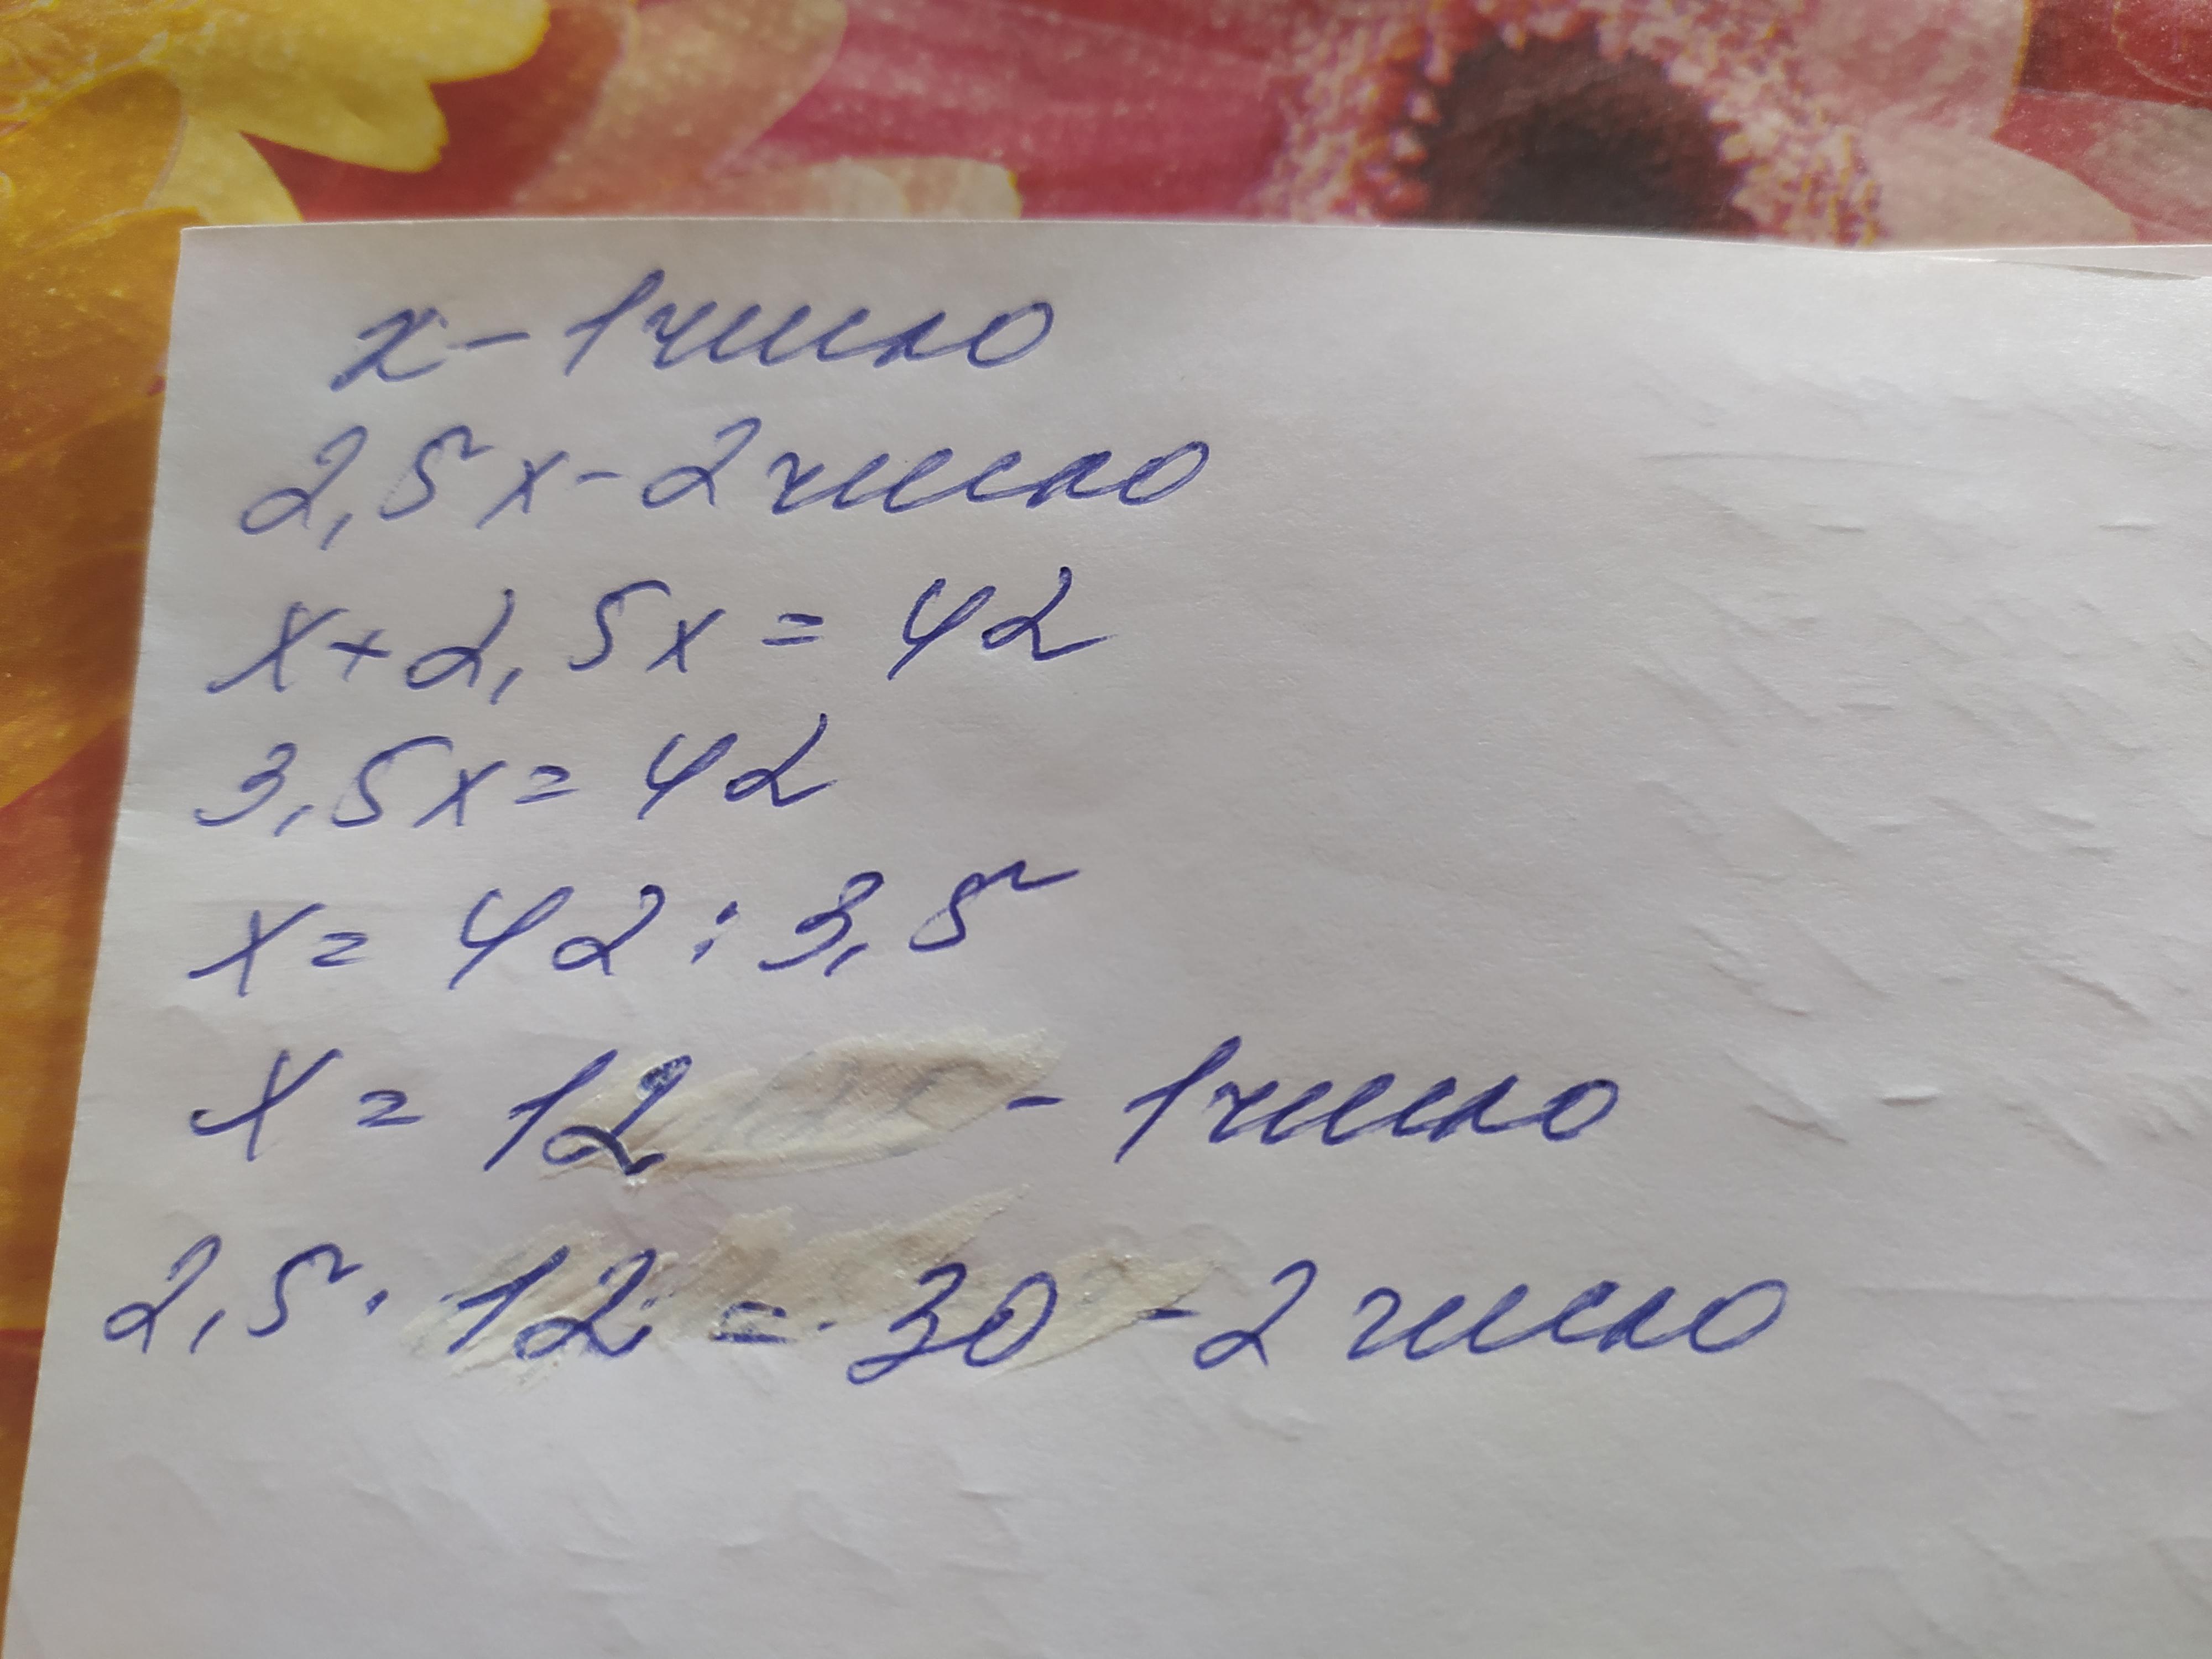 x - 1 число
2,5x - 2 число
x + 2,5x = 42
3,5x = 42
x = 42 : 3,5
x = 12 - 1 число
2,5 · 12 = 30 - 2 число